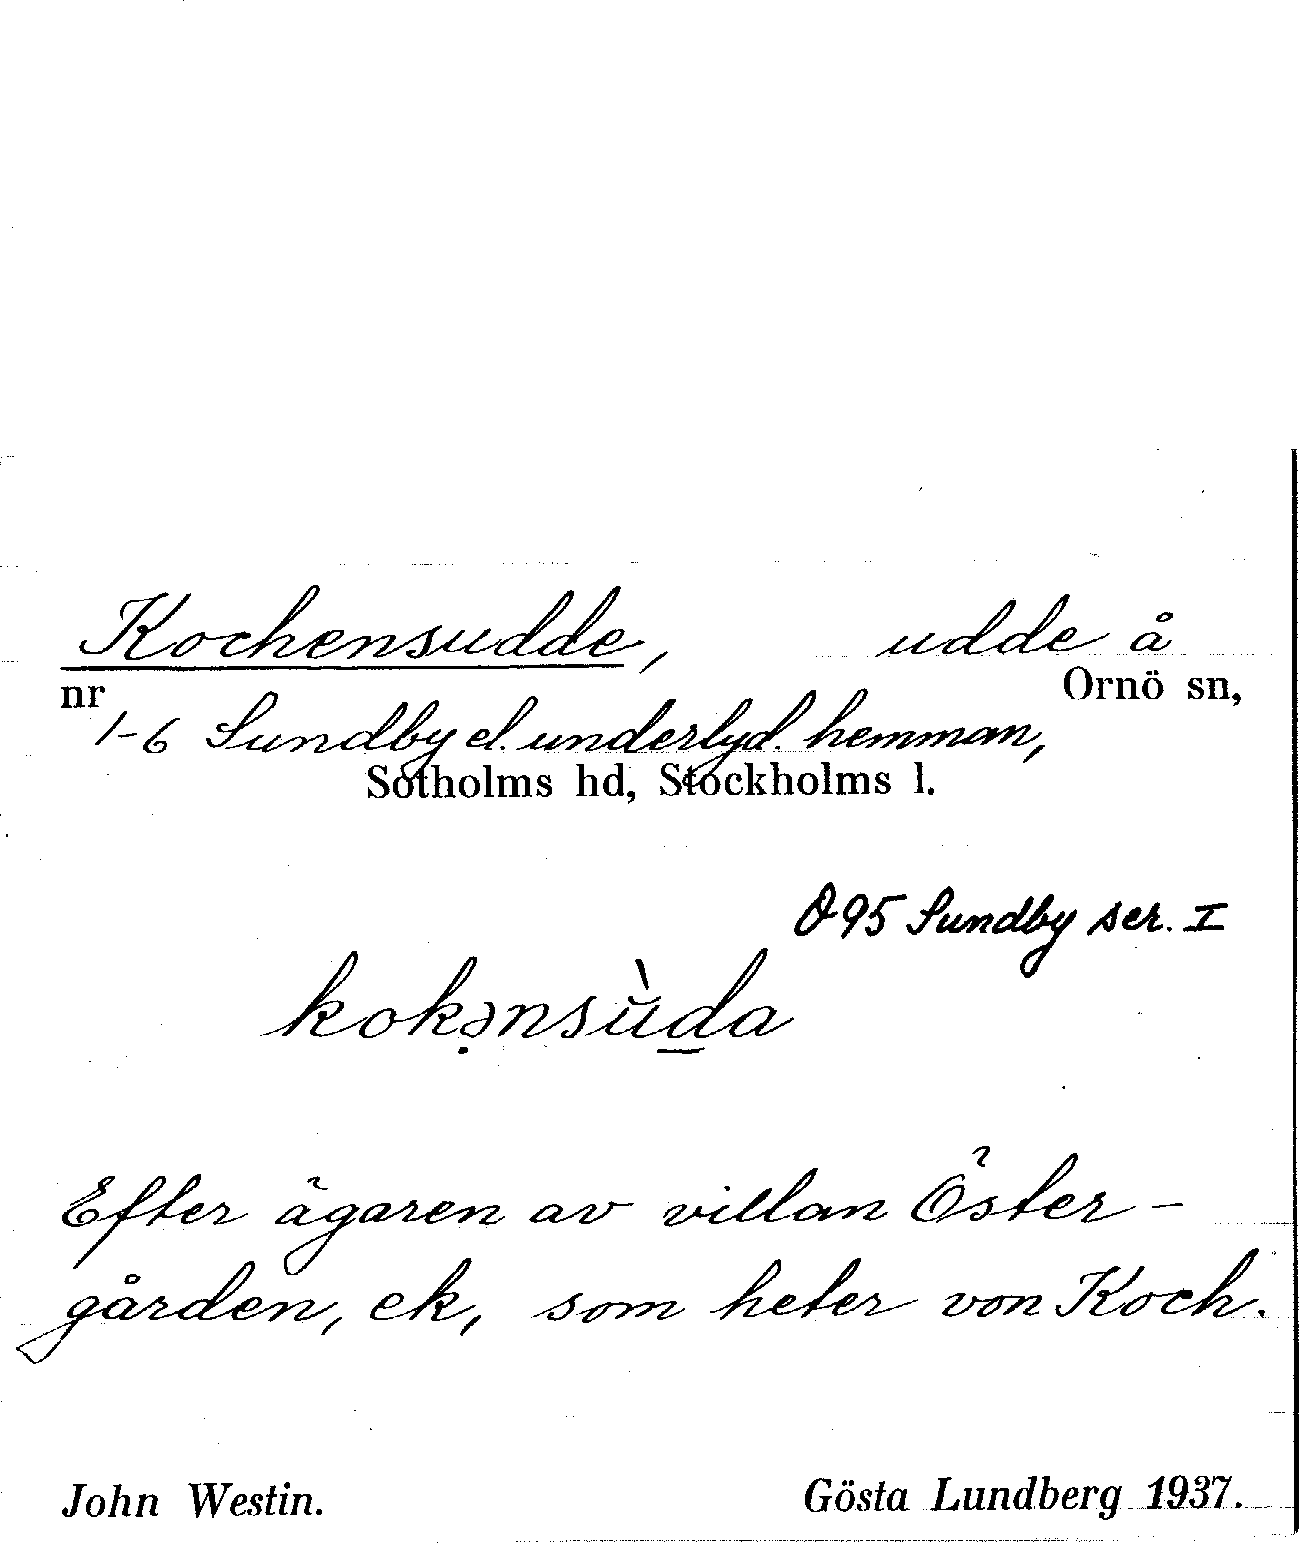 Kochensudde, udde å
nr Ornö sn,
1-6 Sundby el. underlyd. hemman,
Sotholms hd, Stockholms l.
095 Sundby ser. I
kokə̣nsùd̲a
Efter ägaren av villan Öster-
gården, ek, som heter von Koch.
John Westin. Gösta Lundberg 1937.